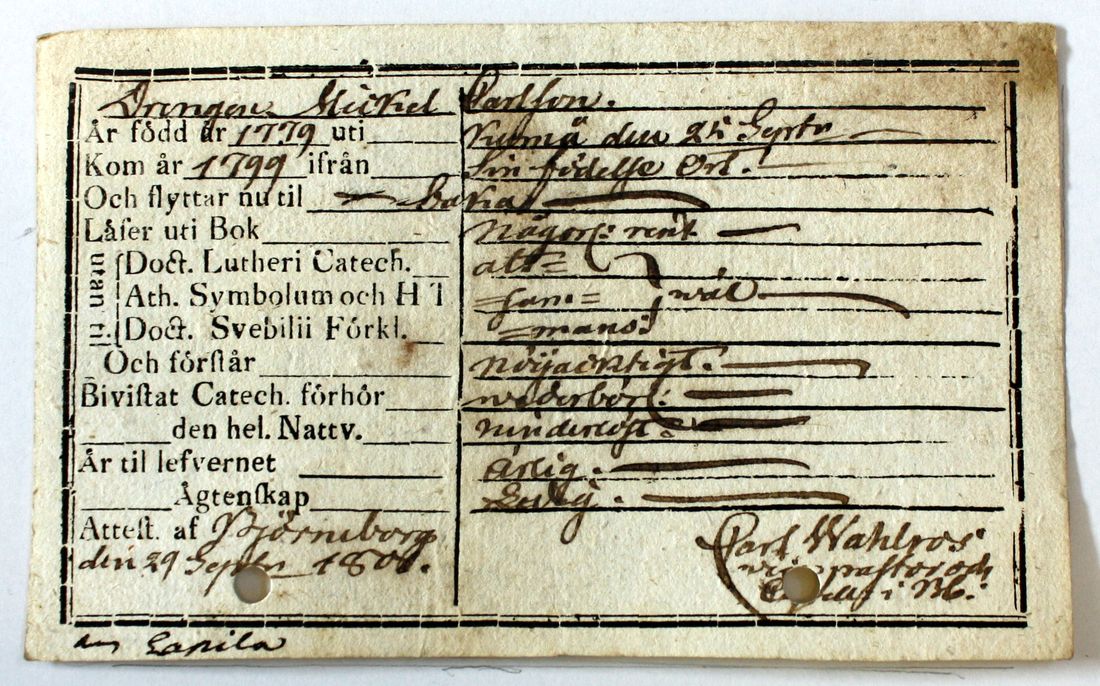 Drengen Mickel Carlson.
År född år 1779 uti Kumå den 24 Septr
Kom år 1799 ifrån Sin födelse Ort.
Och flyttar nu til baka
Låſer uti Bok någorl: rent
utan til Doct. Lutheri Catech. all=
Ath. Symbolum och H T =sam= wäl
Doct. Svebilii Förkl. =mans:
Och förſtår nöijacktigt.
Biviſtat Catech. förhör wederbörl:
den hel. Nattv.
År til lefvernet ärlig.
Ägtenſkap Ledig.
Atteſt. af Björneborg
den 29 Septbr 180 . Carl Wahlros
pastor och
i Bb:
Lapila